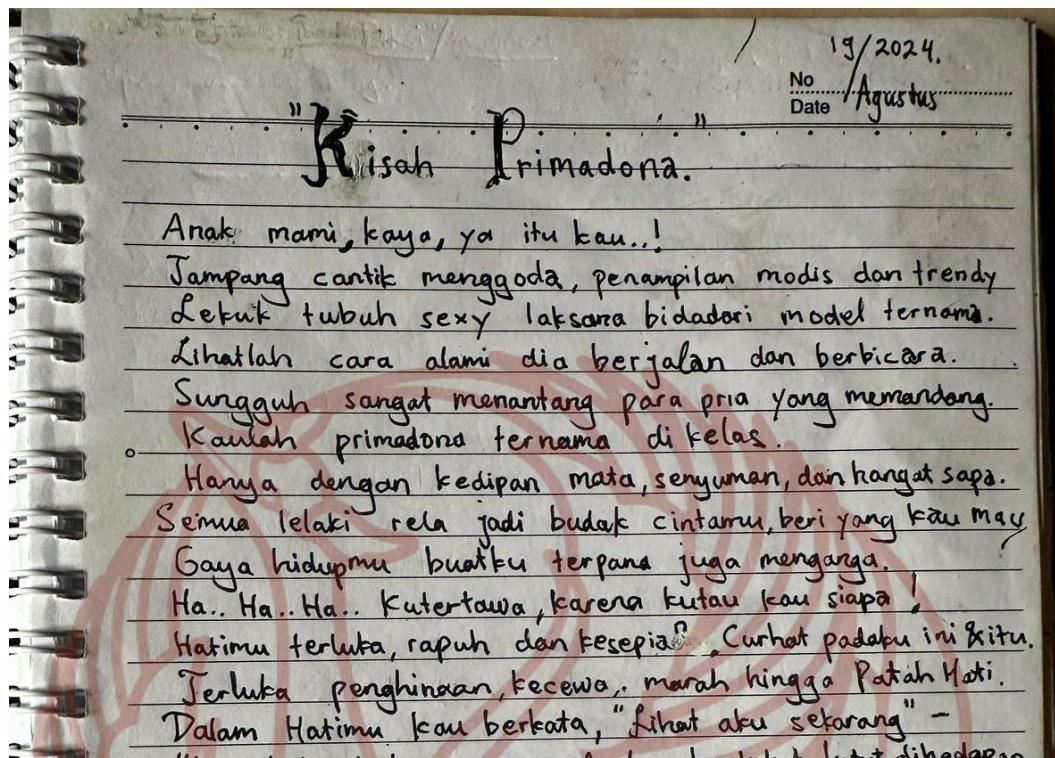 19/2024.
No
Date Agustus
"Kisah Primadona."
Anak mami, kaya, ya itu kau..!
Tampang cantik menggoda, penampilan modis dan trendy
Lekuk tubuh sexy laksana bidadari model ternama.
Lihatlah cara alami dia berjalan dan berbicara.
Sungguh sangat menantang para pria yang memandang.
Kaulah primadona ternama di kelas.
Hanya dengan kedipan mata, senyuman, dan hangat sapa.
Semua lelaki rela jadi budak cintamu, beri yang kau mau
Gaya hidupmu buatku terpana juga menganga.
Ha.. Ha.. Ha.. Kutertawa, karena kutau kau siapa!
Hatimu terluka, rapuh dan kesepian. Curhat padaku ini & itu.
Terluka penghinaan, kecewa, marah hingga Patah Hati.
Dalam Hatimu kau berkata, "Lihat aku sekarang" -